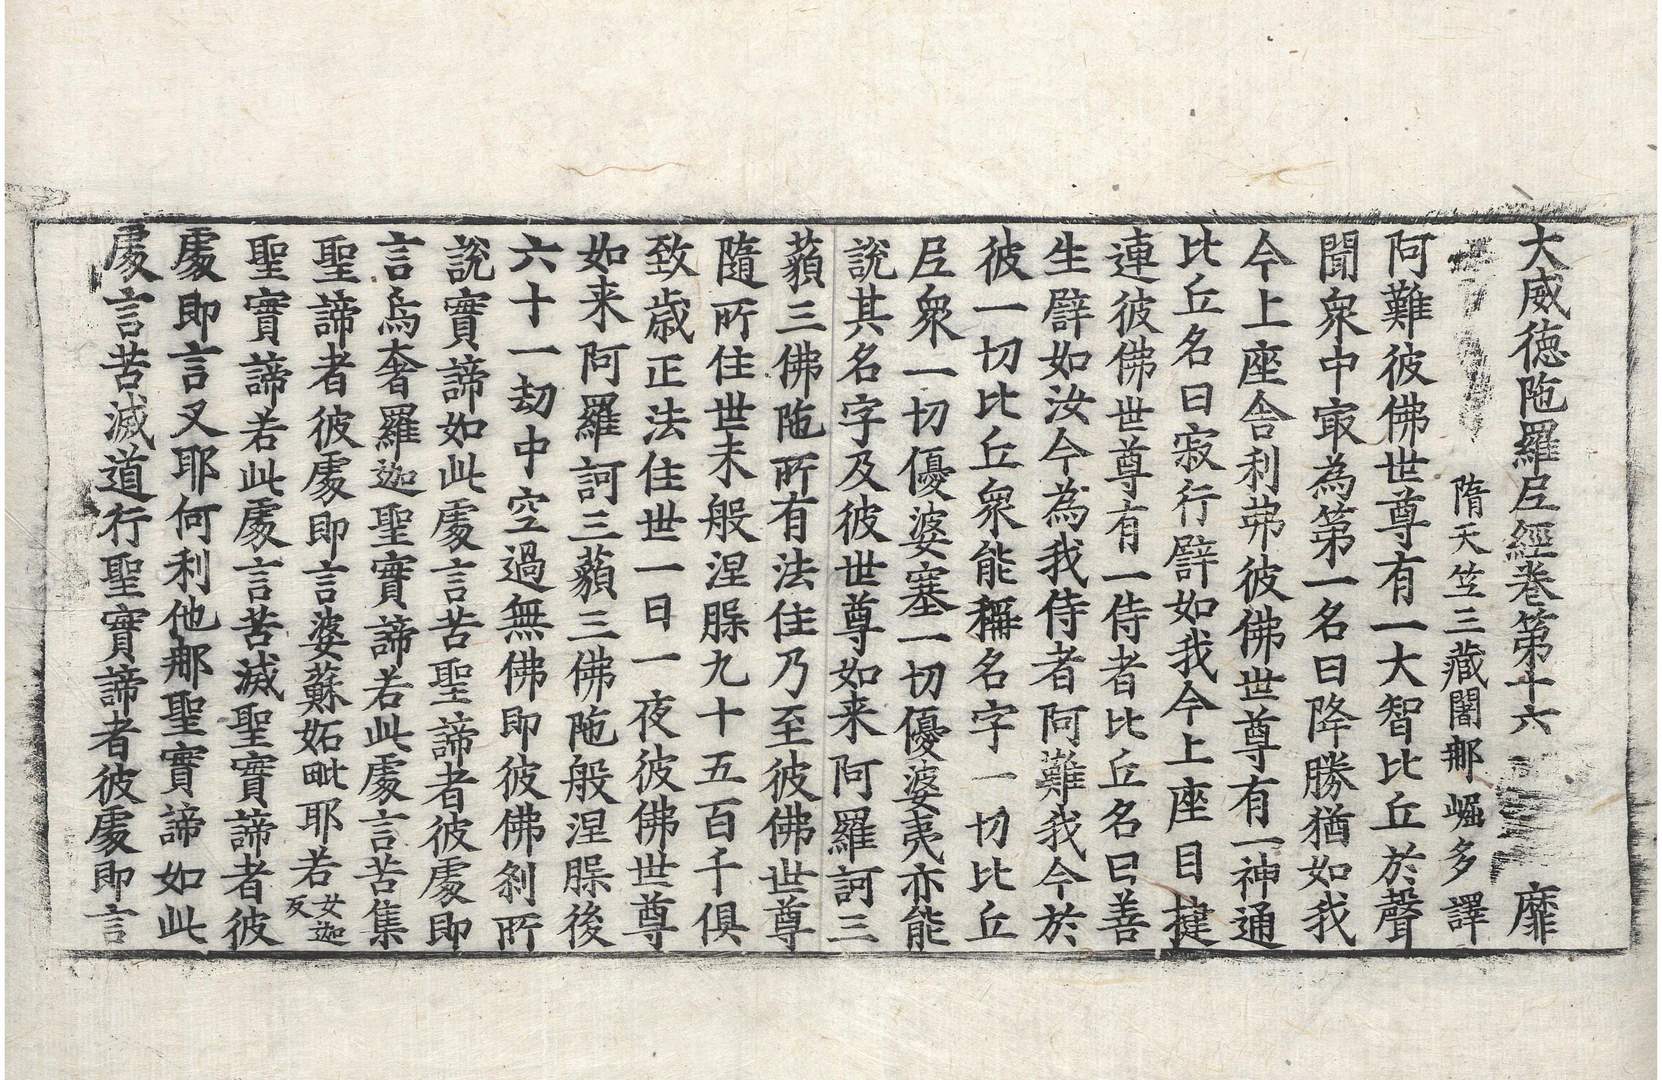 大威徳陁羅𡰱經卷第十六　靡
隋天笠三藏闍𨚗崛多譯
阿難彼佛世尊有一大智比丘於聲
聞衆中㝡為第一名曰降勝猶如我
今上座舎利弗彼佛世尊有一神通
比丘名曰寂行譬如我今上座目揵
連彼佛世尊有一侍者比丘名曰善
生譬如汝今為我侍者阿難我今於
彼一切比丘衆能稱名字一切比丘
𡰱衆一切優婆塞一切優婆夷亦能
說其名字及彼世尊如来阿羅訶三
藐三佛陁所有法住乃至彼佛世尊
隨所住世未般涅槃九十五百千俱
致歲正法住世一日一夜彼佛世尊
如来阿羅訶三藐三佛陁般涅槃後
六十一劫中空過無佛即彼佛刹所
說實諦如此處言苦聖諦者彼處即
言烏奢羅迦聖實諦若此處言苦集
聖諦者彼處即言婆蘇妬毗耶若女迦反
聖實諦若此處言苦滅聖實諦者彼
處即言叉耶何利他𨚗聖實諦如此
處言苦滅道行聖實諦者彼處即言